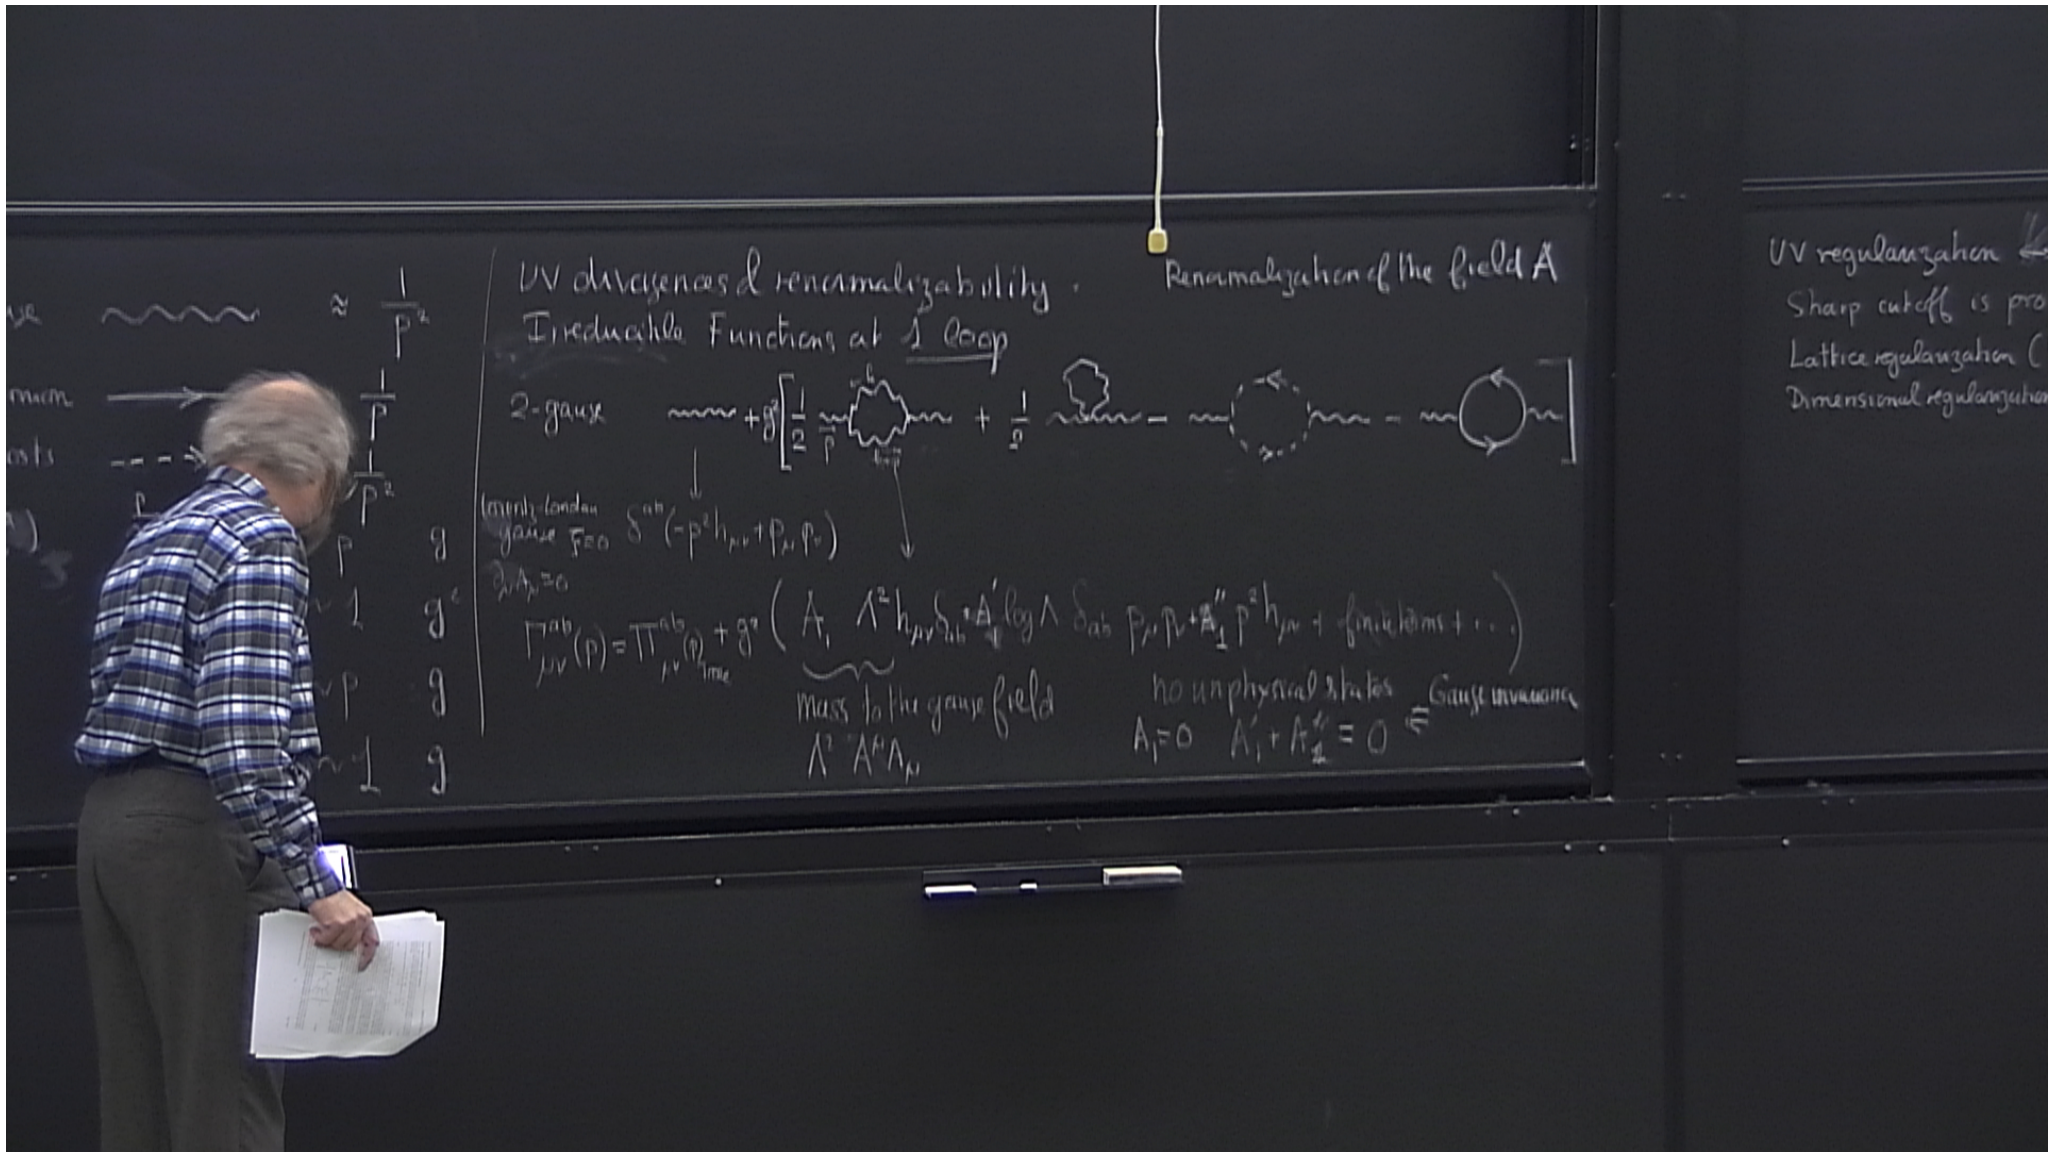 ≈ 1/p²
1/p
1/p²
p g
1 g²
p g
1 g
UV divergences & renormalizability.
Irreducible Functions at 1 loop
2-gauge + g² [ 1/2 p + 1/2 - - ]
gauge ξ=0 δ^{ab} (-p² h_{μν} + p_μ p_ν)
∂_μ A_μ = 0
Γ^{ab}_{μν}(p) = Π^{ab}_{μν}(p) + g² ( A₁ Λ² h_{μν} δ_{ab} + A'₁ log Λ δ_{ab} p_μ p_ν + A''₁ p² h_{μν} + finite terms + ... )
mass to the gauge field
Λ² A^μ A_μ
no unphysical states
A₁=0 A'₁ + A''₁ ≡ 0 ⇐ Gauge invariance
Renormalization of the field A
UV regularization
Sharp cutoff is pro
Lattice regularization (
Dimensional regularization